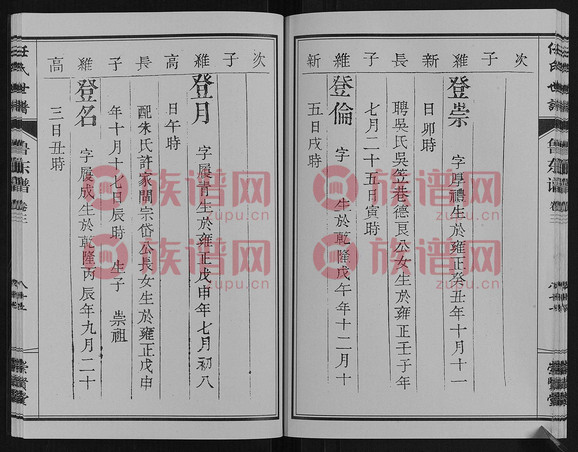 次
子
雅
新
長
子
雅
新
登崇
字厚禮生於雍正癸丑年十月十一
日卯時
聘吳氏吳笠巷德良公女生於雍正壬子年
七月二十五日寅時
登倫
字
生於乾隆戊午年十二月十
五日戌時
次
子
雅
高
長
子
雅
高
登月
字履青生於雍正戊申年七月初八
日午時
配朱氏許家閣宗岱公長女生於雍正戊申
年十月十七日辰時
生子
崇祖
登名
字履成生於乾隆丙辰年九月二十
三日丑時
任氏世譜
魯东譜
卷三
族谱网
zupu.cn
族谱网
zupu.cn
族谱网
zupu.cn
族谱网
zupu.cn